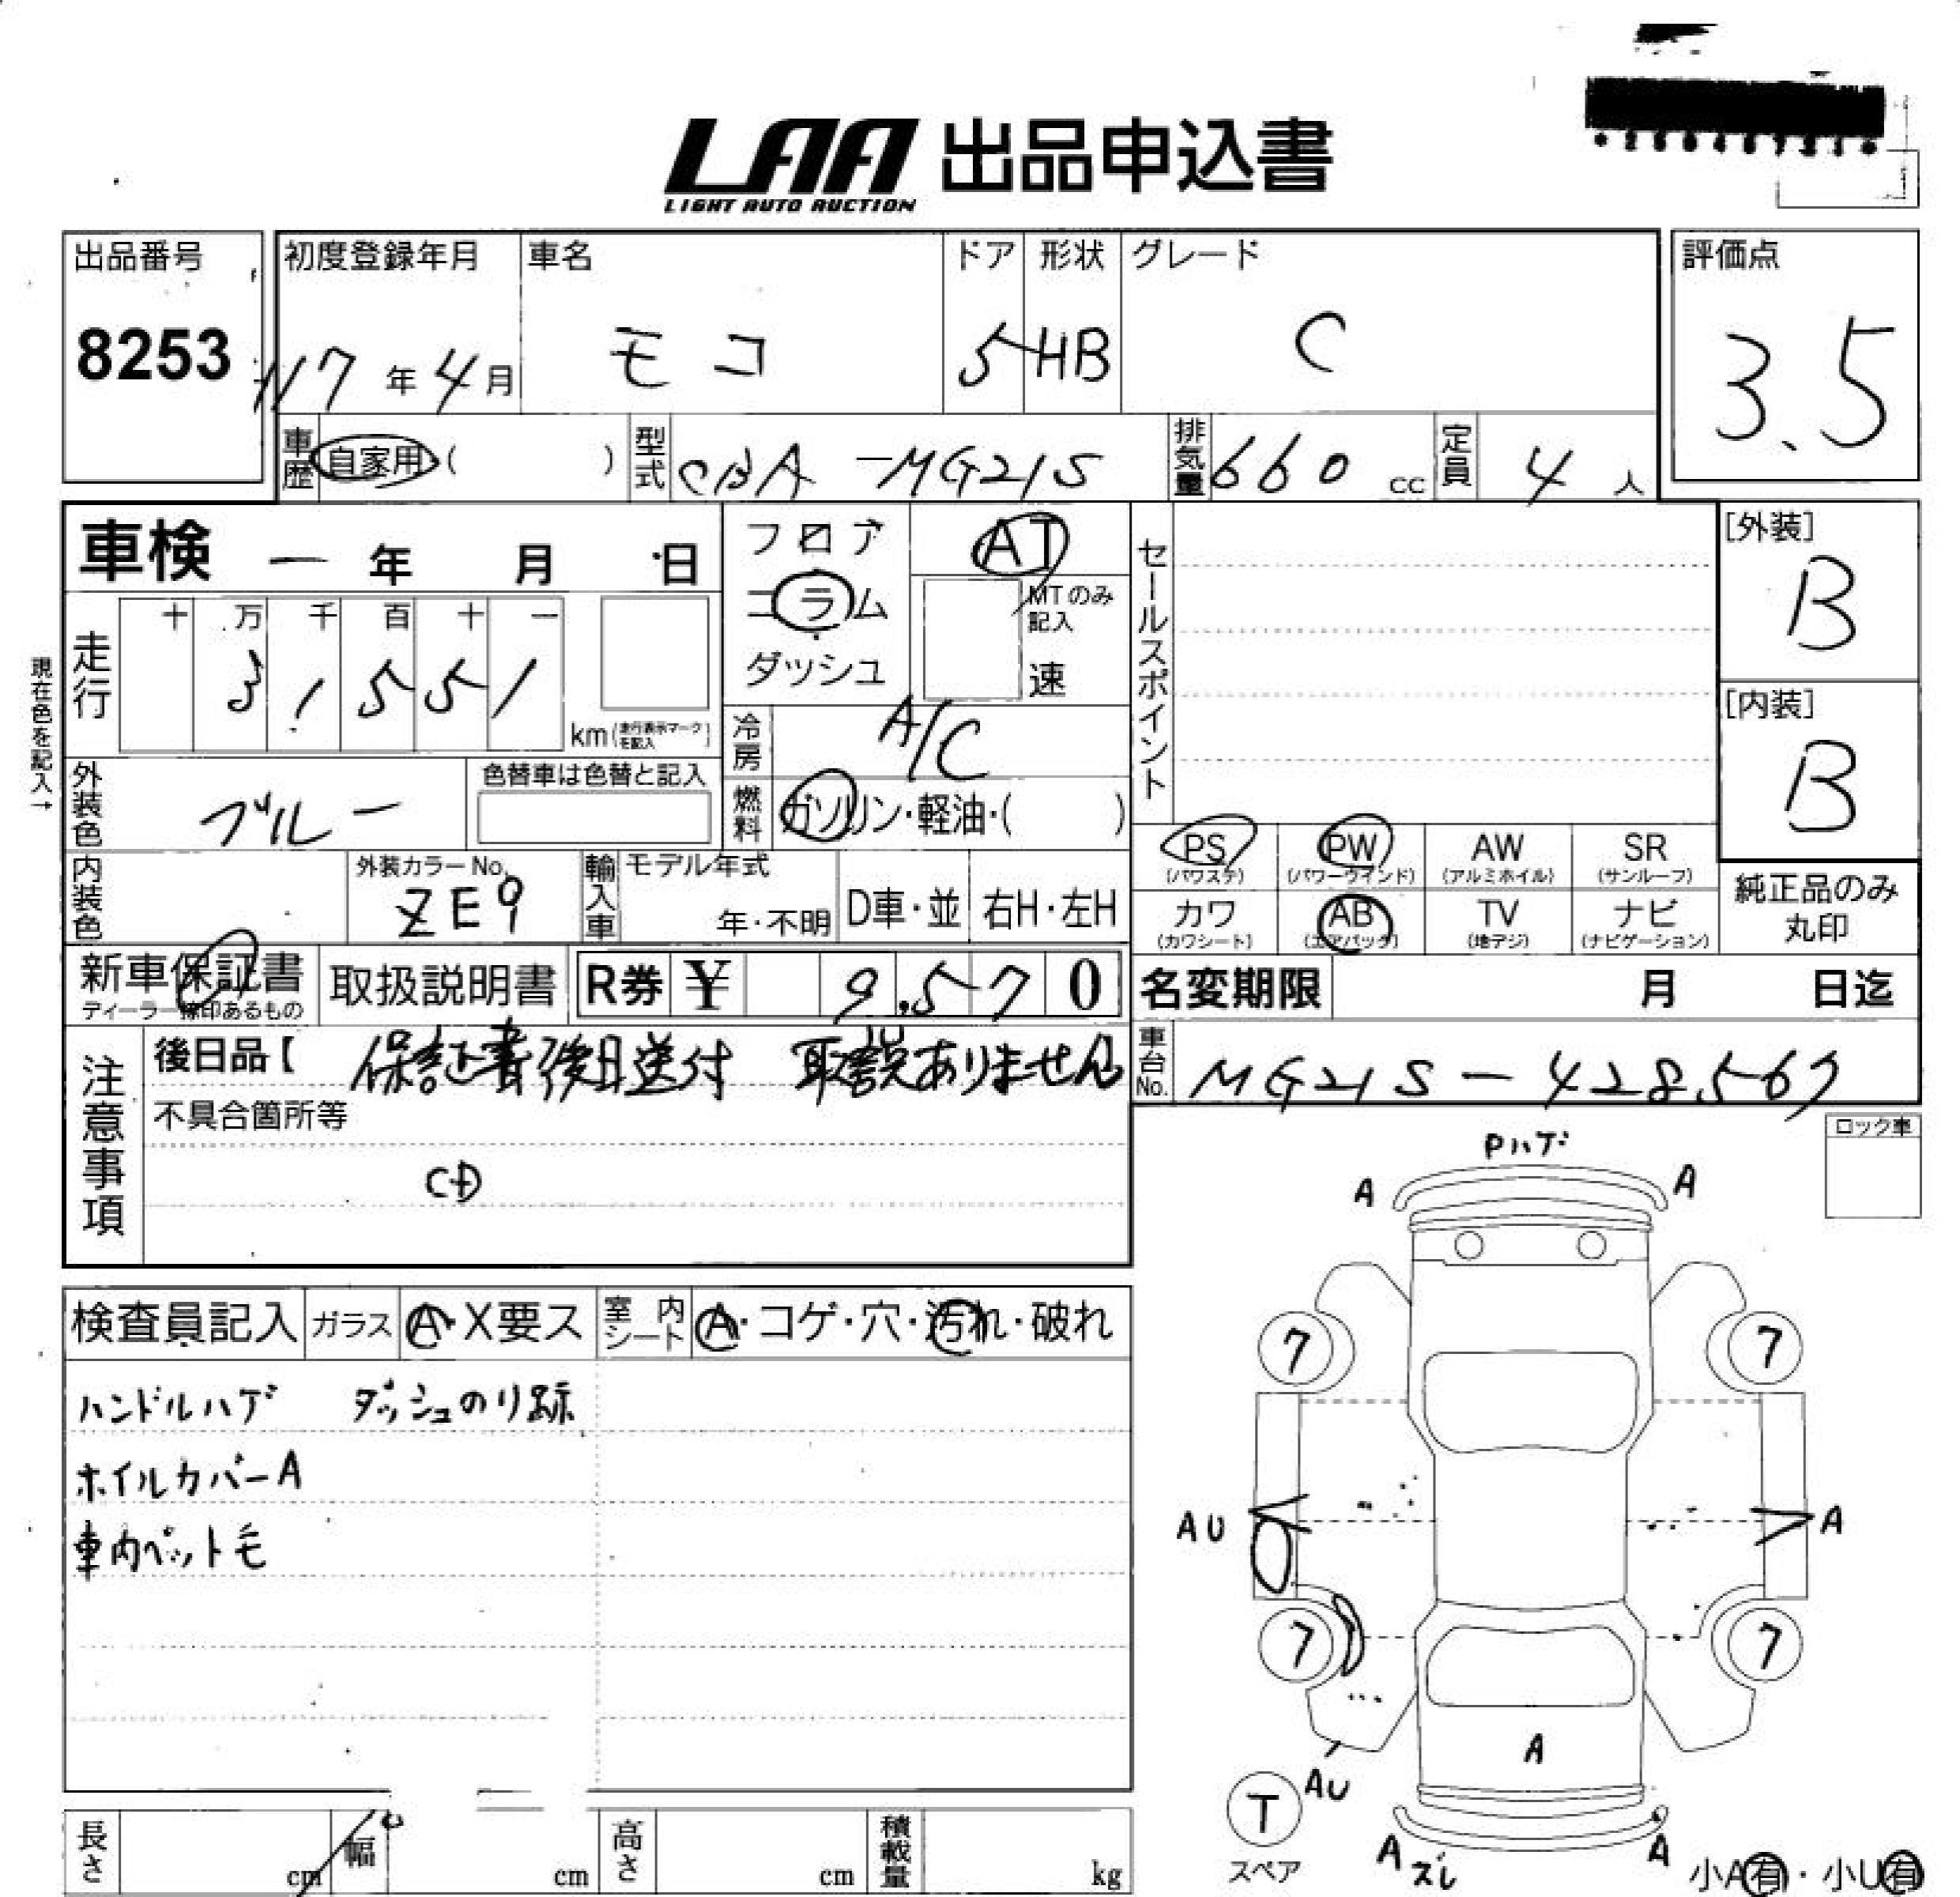 LAA 出品申込書
LIGHT AUTO AUCTION
出品番号
8253
初度登録年月
17年4月
車名
モコ
ドア
5
形状
HB
グレード
C
評価点
3.5
車歴 自家用( )
型式 CBA-MG21S
排気量 660 cc
定員 4人
車検 一 年 月 日
フロア
コラム
ダッシュ
AT
MTのみ記入
速
セールスポイント
[外装]
B
[内装]
B
現在色を記入→
走行
十 万 千 百 十 一
3 1 5 5 1
km(走行表示マークを記入)
冷房 A/C
外装色 ブルー
色替車は色替と記入
燃料 ガソリン・軽油・( )
PS (パワステ)
PW (パワーウインド)
AW (アルミホイル)
SR (サンルーフ)
カワ (カワシート)
AB (エアバック)
TV (地デジ)
ナビ (ナビゲーション)
純正品のみ
丸印
内装色
外装カラーNo.
ZE9
輸入車
モデル年式
年・不明
D車・並
右H・左H
新車保証書
ディーラー捺印あるもの
取扱説明書
R券 ¥ 9,570
名変期限 月 日迄
注意事項
後日品【 保証書後日送付 取説ありません
車台No. MG21S-428567
不具合箇所等
CD
ロック車
Pハゲ
A A
検査員記入 ガラス A・X要ス 室内シート A・コゲ・穴・汚れ・破れ
ハンドルハゲ ダッシュのり跡
ホイルカバーA
車内ペット毛
7 7
AU A
7 7
A
AU
T
スペア
A ズレ A
小A有・小U有
長さ cm
幅 cm
高さ cm
積載量 kg